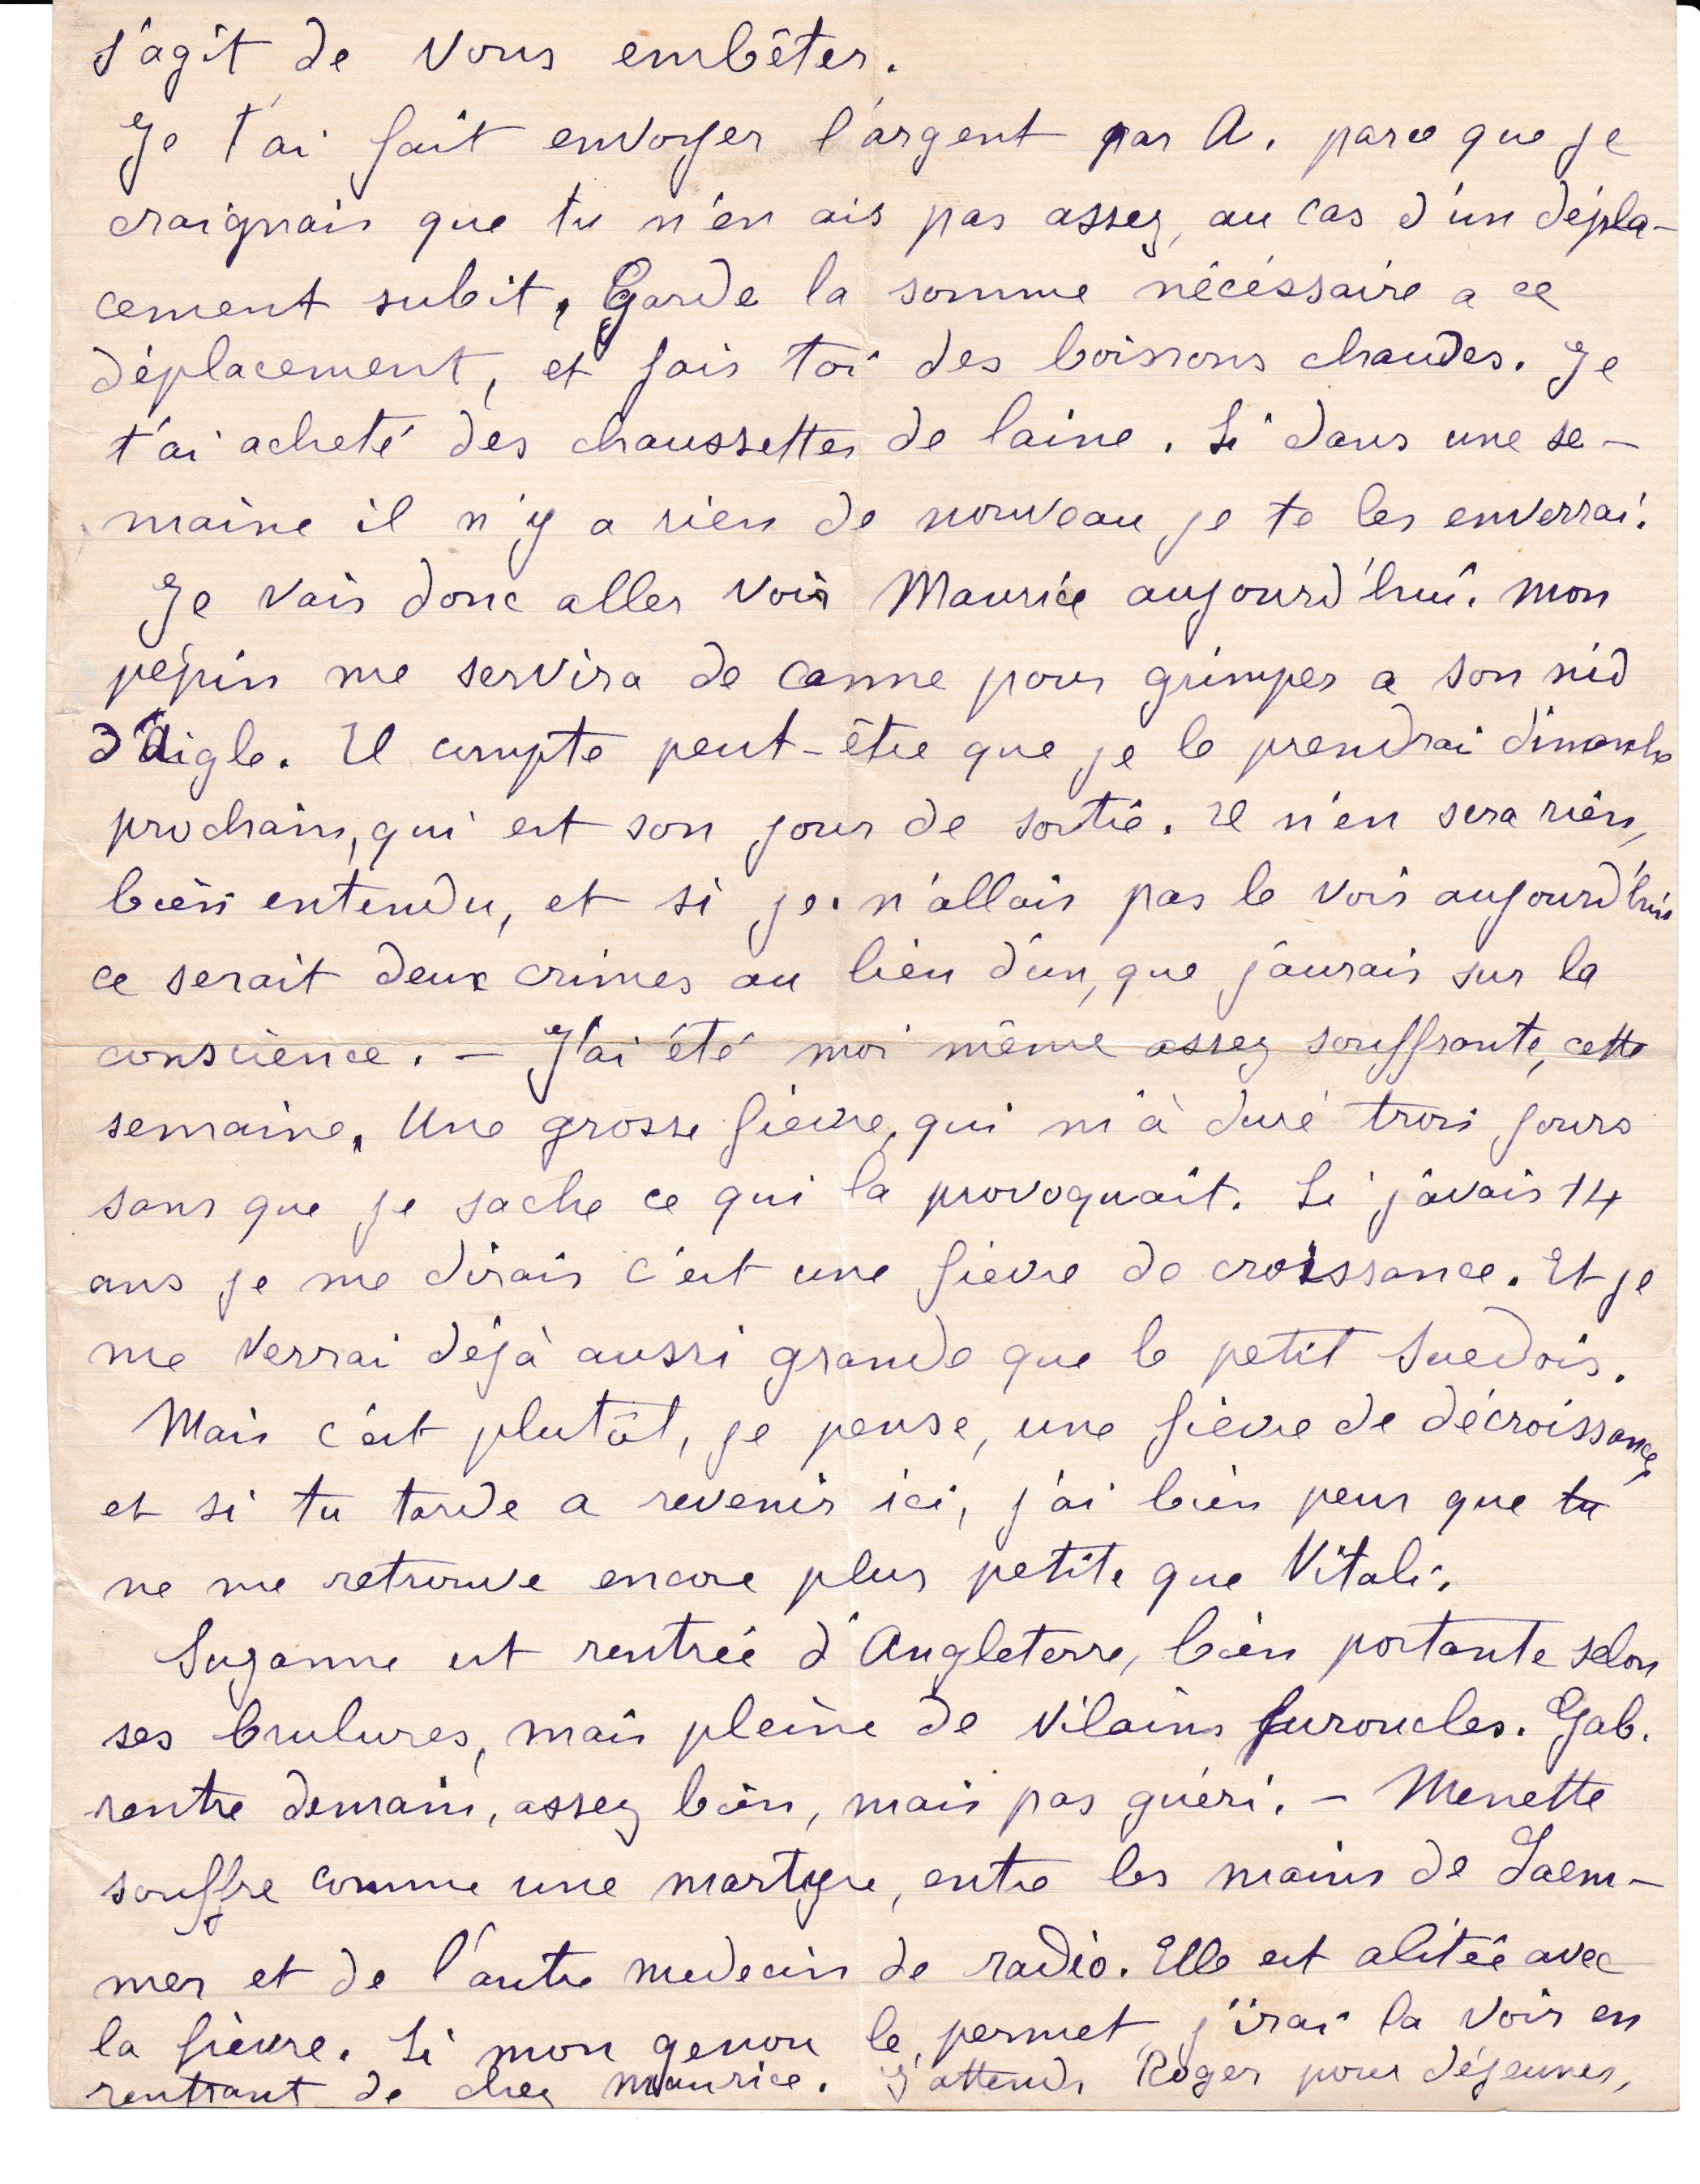 s'agit de vous embêter.
Je t'ai fait envoyer l'argent par A. parce que je
craignais que tu n'en ais pas assez, au cas d'un dépla-
cement subit, Garde la somme nécéssaire a ce
déplacement, et fais toi des boissons chaudes. Je
t'ai acheté des chaussettes de laine. Si dans une se-
maine il n'y a rien de nouveau je te les enverrai.
Je vais donc aller voir Maurice aujourd'hui. Mon
pépin me servira de canne pour grimper a son nid
d'Aigle. Il compte peut-être que je le prendrai dimanche
prochain, qui est son jour de sortie. Il n'en sera rien,
bien entendu, et si je n'allais pas le voir aujourd'hui
ce serait deux crimes au lieu d'un, que j'aurais sur la
conscience. - J'ai été moi même assez souffrante, cette
semaine. Une grosse fièvre, qui m'à duré trois jours
sans que je sache ce qui la provoquait. Si j'avais 14
ans je me dirais c'est une fièvre de croissance. Et je
me verrai déjà aussi grande que le petit Suedois.
Mais c'est plutôt, je pense, une fièvre de décroissance,
et si tu tarde a revenir ici, j'ai bien peur que tu
ne me retrouve encore plus petite que Vitali.
Suzanne est rentrée d'Angleterre, bien portante selon
ses brulures, mais pleine de vilains furoncles. Gab.
rentre demain, assez bien, mais pas guéri. - Menette
souffre comme une martyre, entre les mains de Laem-
mer et de l'autre medecin de radio. Elle est alitée avec
la fièvre. Si mon genou le permet, j'irai la voir en
rentrant de chez Maurice. J'attends Roger pour déjeuner,